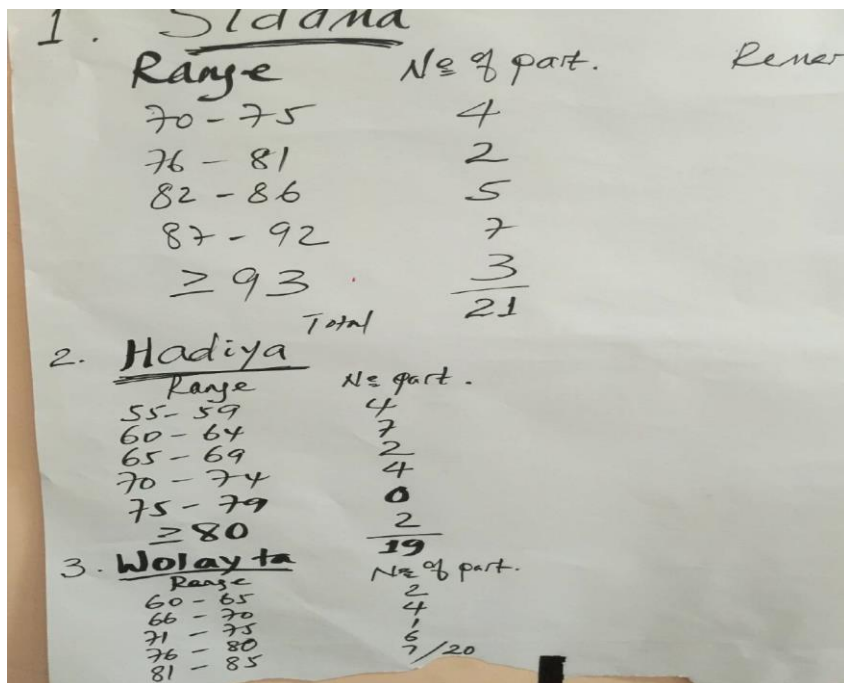 1. Sidama
Range № of part. Remar
70 - 75 4
76 - 81 2
82 - 86 5
87 - 92 7
≥ 93 3
Total 21
2. Hadiya
Range № part.
55 - 59 4
60 - 64 7
65 - 69 2
70 - 74 4
75 - 79 0
≥ 80 2
19
3. Wolayta
Range № of part.
60 - 65 2
66 - 70 4
71 - 75 1
76 - 80 6
81 - 85 7/20